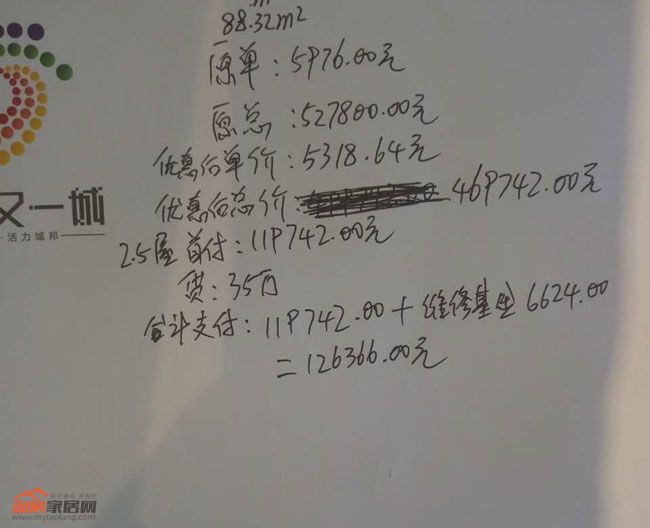 88.32m²
原单:5976.00元
原总:527800.00元
优惠后单价:5318.64元
优惠后总价: 469742.00元
2.5层 首付:119742.00元
贷:35万
合计支付:119742.00+维修基金6624.00
=126366.00元
又一城
·活力城邦
家居网
www.mytaofang.com